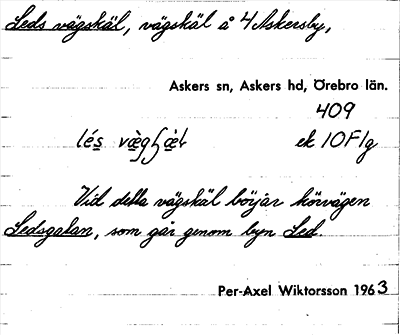 Leds vägskäl, vägskäl å 4 Askersby,
Askers sn, Askers hd, Örebro län.
409
ek 10F1g
Vid detta vägskäl börjar körvägen
Ledsgatan, som går genom byn Led.
Per-Axel Wiktorsson 1963